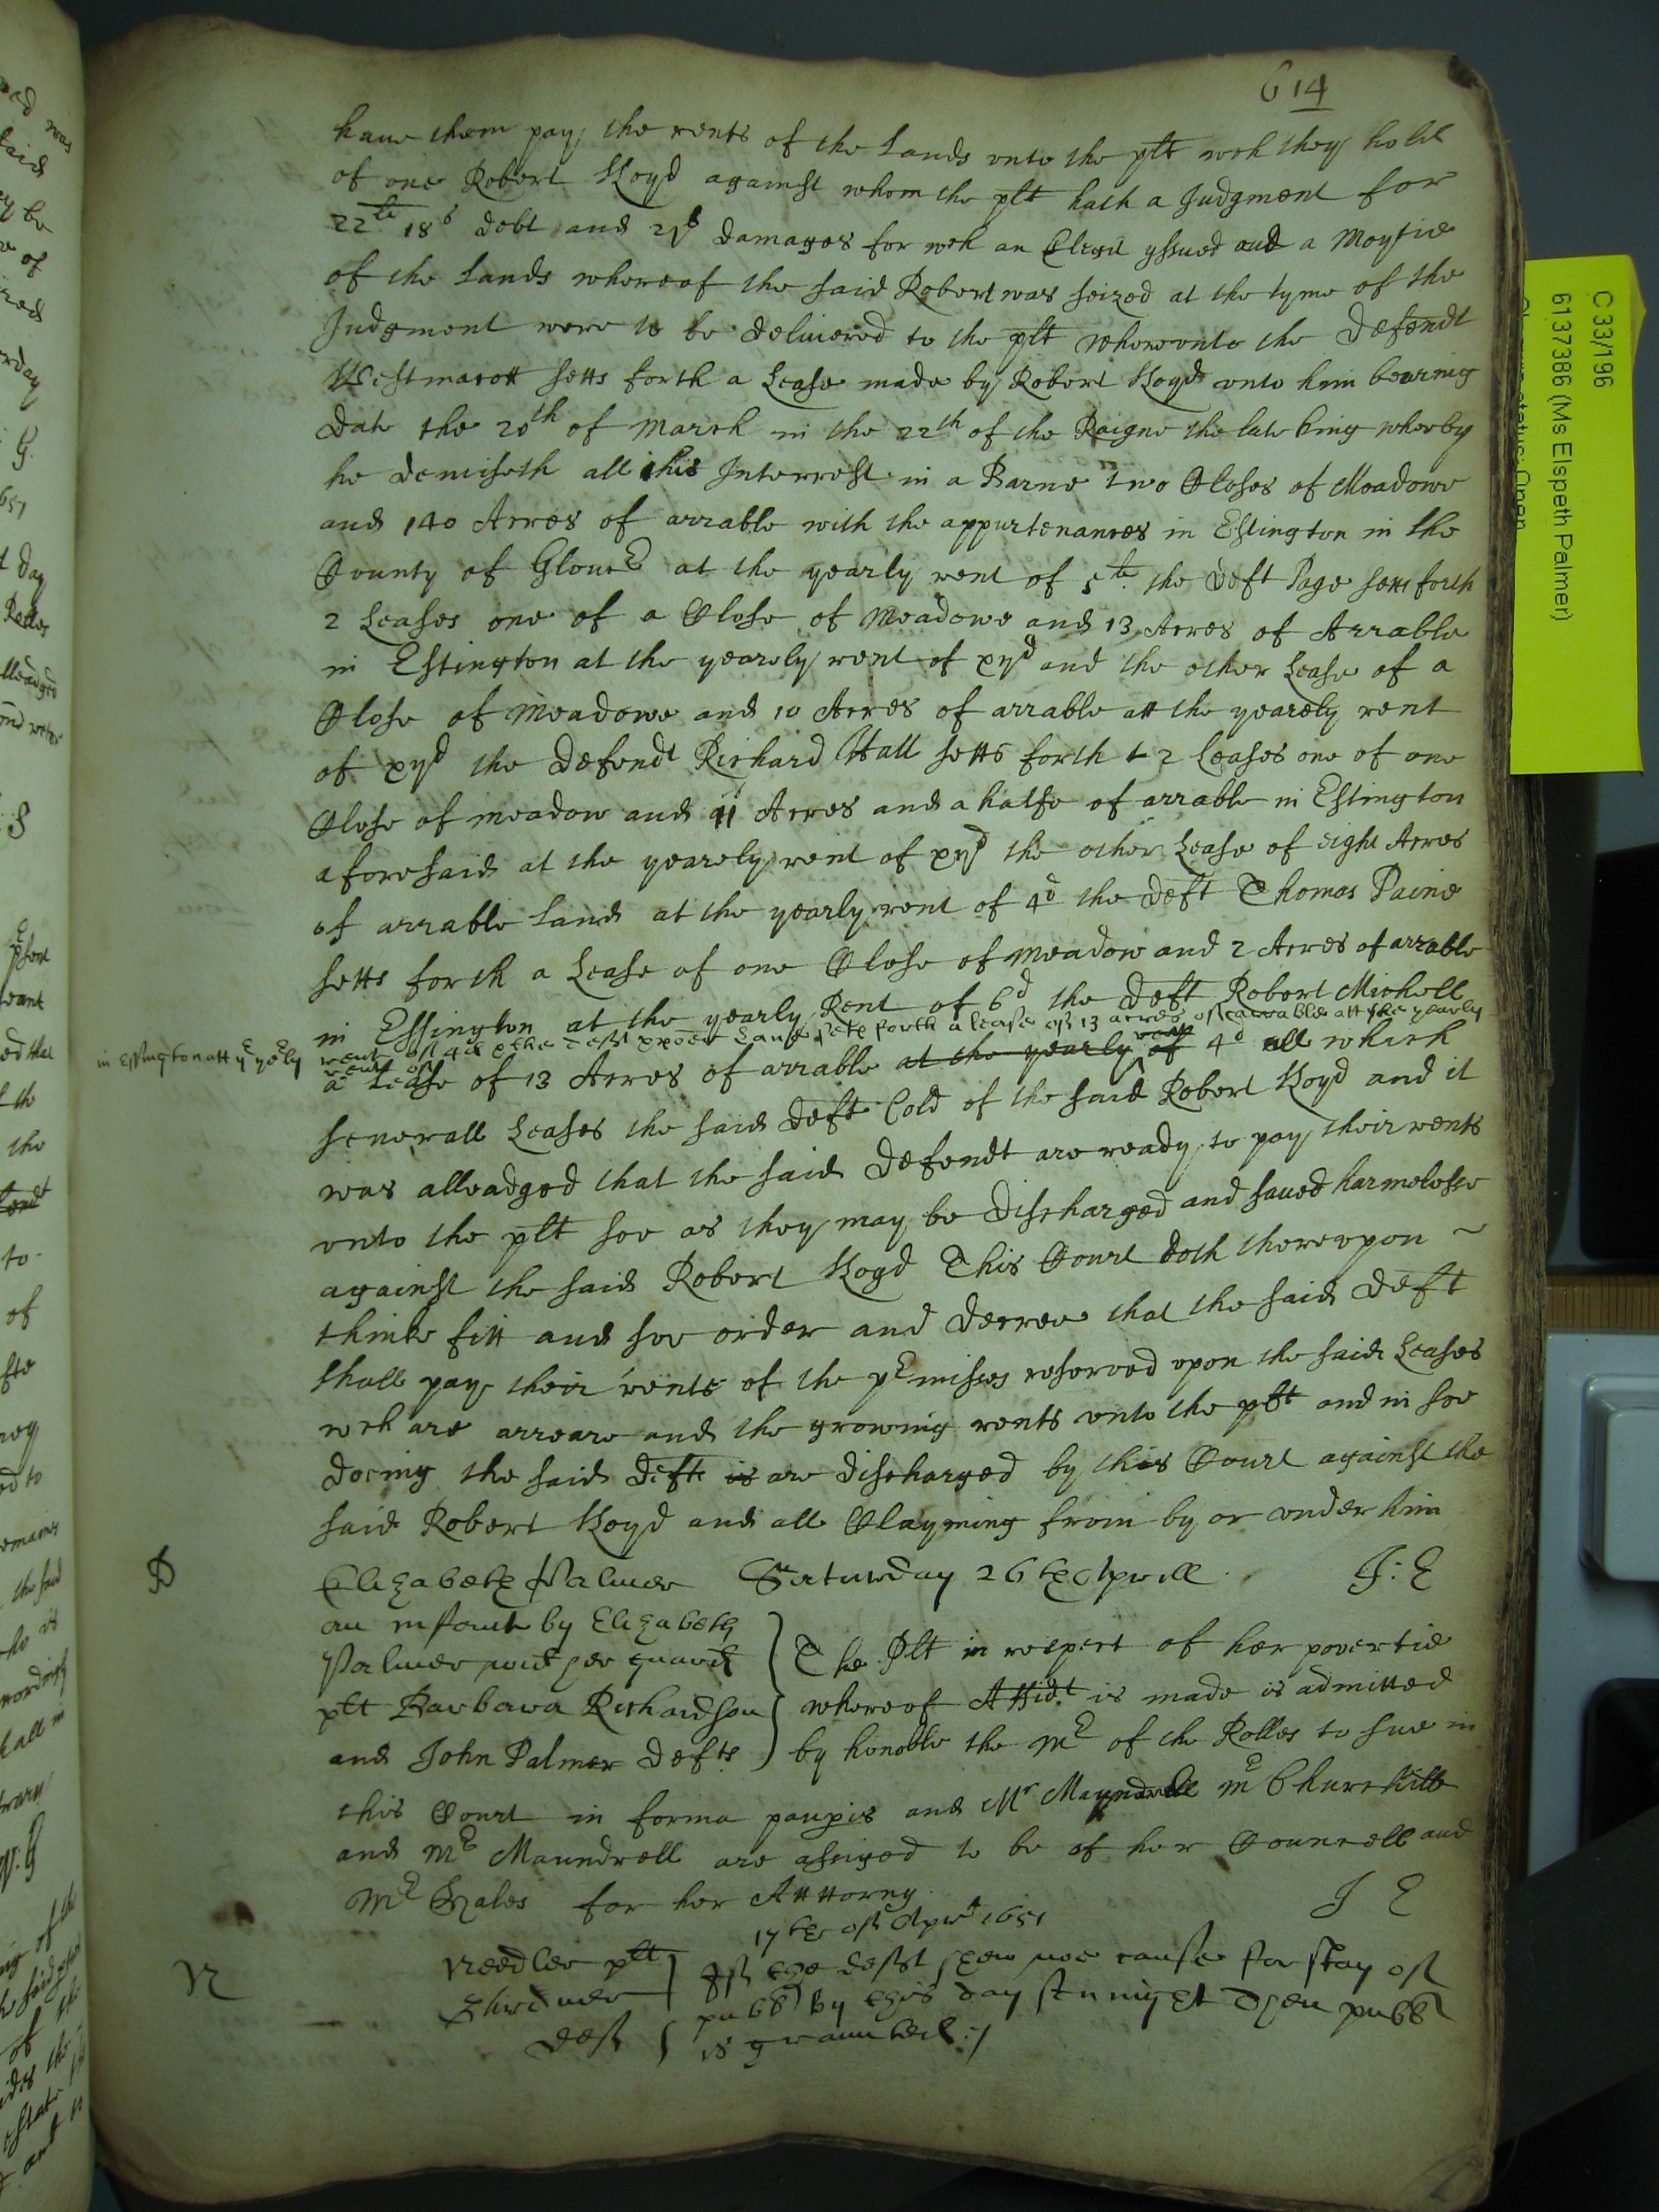 614
have them pay the rents of the Lands vnto the plt wch they hold
of one Robert Hoyd against whom the plt hath a Judgment for
22li 18s debt and 21s damages for wch an Elegit yssued and a Moytie
of the Lands whereof the said Robert was seized at the tyme of the
Judgment were to be deliuered to the plt wherevnto the Defendt
Westmacott setts forth a Lease made by Robert Hoyd vnto him bearing
Date the 20th of March in the 22th of the Raigne the late king wherby
he demiseth all his Interrest in a Barne two Closes of Meadowe
and 140 Acres of arrable with the appurtenances in Estington in the
County of Glouc at the yearly rent of 5li the Deft Page setts forth
2 Leases one of a Close of Meadowe and 13 Acres of Arrable
in Estington at the yearely rent of xijd and the other Lease of a
Close of Meadowe and 10 Acres of arrable att the yearely rent
of xijd the Defendt Richard Hall setts forth 2 Leases one of one
Close of meadow and 11 Acres and a halfe of arrable in Estington
aforesaid at the yearely rent of xijd the other Lease of eight Acres
of arrable Land at the yearly rent of 4d the Deft Thomas Paine
setts forth a Lease of one Close of Meadow and 2 Acres of arrable
in Essington at the yearly Rent of 6d the Deft Robert Michell
sets forth a lease of 13 acres of arrable att the yearly
in Essington att ye yerly rent of
a Lease of 13 Acres of arrable at the yearly rent of 4d all which
seuerall Leases the said Deft hold of the said Robert Hoyd and it
was alleadged that the said Defendt are ready to pay their rents
vnto the plt soe as they may be discharged and saued harmelesse
against the said Robert Hoyd This Court doth therevpon
thinke fitt and soe order and decree that the said Deft
shall pay their rents of the prmisses reserved vpon the said Leases
wch are arreare and the growing rents vnto the plt and in soe
doeing the said Defts is are discharged by this Court against the
said Robert Hoyd and all Clayming from by or vnder him
P
Elizabeth Palmer Saturday 26th Aprill J: E
an infant by Elizabeth
Palmer wid her guardi
plt Barbara Richardson
and John Palmer Defts
The Plt in respect of her povertie
whereof Affidt is made is admitted
by honoble the Mr of the Rolles to sue in
this Court in forma paupis and Mr Maundrell Mr Churchill
and Mr Maundrell are assigned to be of her Councell and
Mr Hales for her Atttorny J E
17th of Aprll 1651
N
Needler plt
deft
If the deft shew noe cause for stay of
publ by this day sennight then publ
is graunted
C 33/196
6137386 (Ms Elspeth Palmer)